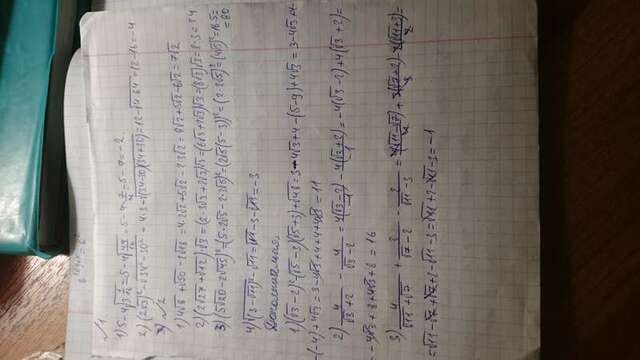 √1.
1) 5-4√3 1/16 = 5-4√49/16 = 5-4·7/4 = 5-7 = -2
2) (2√3)² - √34²-30² = 4·3-√(34-30)(34+30) = 12-√4·64 = 12-16 = -4
√2
1) 4√8 + √50 - 2√18 = 4·2√2 + 5√2 - 2·3√2 = 8√2 + 5√2 - 6√2 = 7√2
2) (2√27 + √12)·√3 = (2·3√3 + 2√3)√3 = (6√3 + 2√3)√3 = (8√3)√3 = 8·3 = 24
3) (5√20 - 2√45)² = (5·2√5 - 2·3√5)² = (2√5(5-3))² = (2·2√5)² = (4√5)² = 16·5 =
= 80
4) √(3-√11)² - √11 = √11 - 3 - √11 = -3
Дополнительно
1) (√3-2)² - (√5-3)(√5+3) + √48 = 3-4√3+4-(5-9)+4√3 = 3-4√3+4-
-(-4)+4√3 = 3-4√3+4+4+4√3 = 11
2) 4/√3+2 - 4/√3-2 = 4(√3-2)/-1 - 4(√3+2)/-1 = -4(√3-2)+4(√3+2) =
= -4√3+8+4√3+8 = 16
3) 4/√11+√7 + 3/√7-2 - 2/√11-3 = 4(√11-√7)/4 + 3(√7+2)/3 - 2(√11+3)/2 =
= √11-√7+√7+2-√11-3 = √11+2-√11-3 = -1